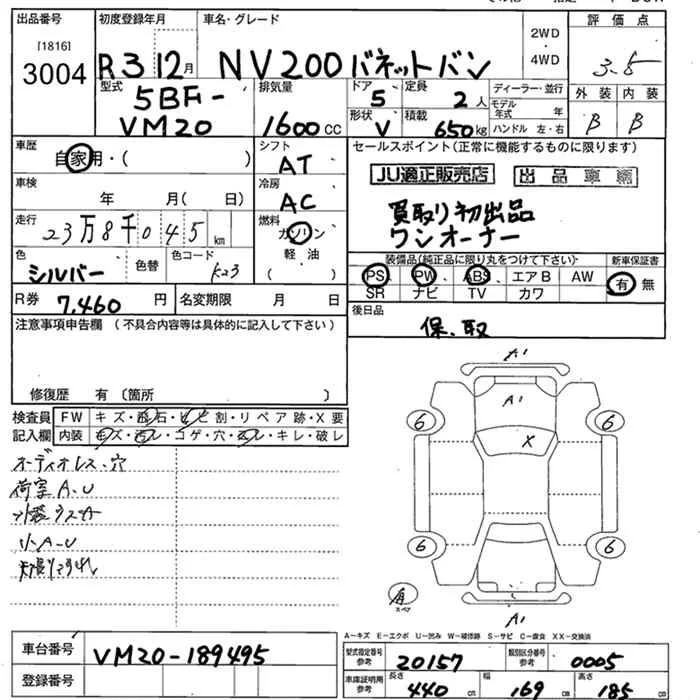 出品番号 初度登録年月 車名・グレード 評価点
[1816]
3004 R3 12月 NV200バネットバン 2WD・4WD 3.5
型式 5BF- 排気量 ドア 5 定員 2人 ディーラー・並行 外装 内装
VM20 1600cc 形状 V 積載 650kg モデル年式 年 B B
ハンドル 左・右
車歴 シフト セールスポイント(正常に機能するものに限ります)
自家用・( ) AT JU適正販売店 出品車輌
車検 冷房
年 月( 日) AC 買取り初出品
走行 燃料 ワンオーナー
23万8千045km ガソリン
色 色替 色コード 軽油 装備品(純正品に限り丸をつけて下さい) 新車保証書
シルバー K23 ( ) PS PW ABS エアB AW 有 無
SR ナビ TV カワ
R券 7,460円 名変期限 月 日 後日品
注意事項申告欄 (不具合内容等は具体的に記入して下さい) 保、取
修復歴 有 〔箇所 〕
検査員 FW キズ・飛石・ヒビ割・リペア跡・X要
記入欄 内装 キズ・汚レ・コゲ・穴・スレ・キレ・破レ
オーディオレス・穴
荷室A.U
小A-U
A'
A'
X
6 6
6 6
有
スペア
A'
A-キズ E-エクボ U-凹み W-補修跡 S-サビ C-腐食 XX-交換済
車台番号 VM20-189495 型式指定番号 参考 20157 類別区分番号 参考 0005
登録番号 車庫証明用 参考 長さ 440cm 幅 169cm 高さ 185cm